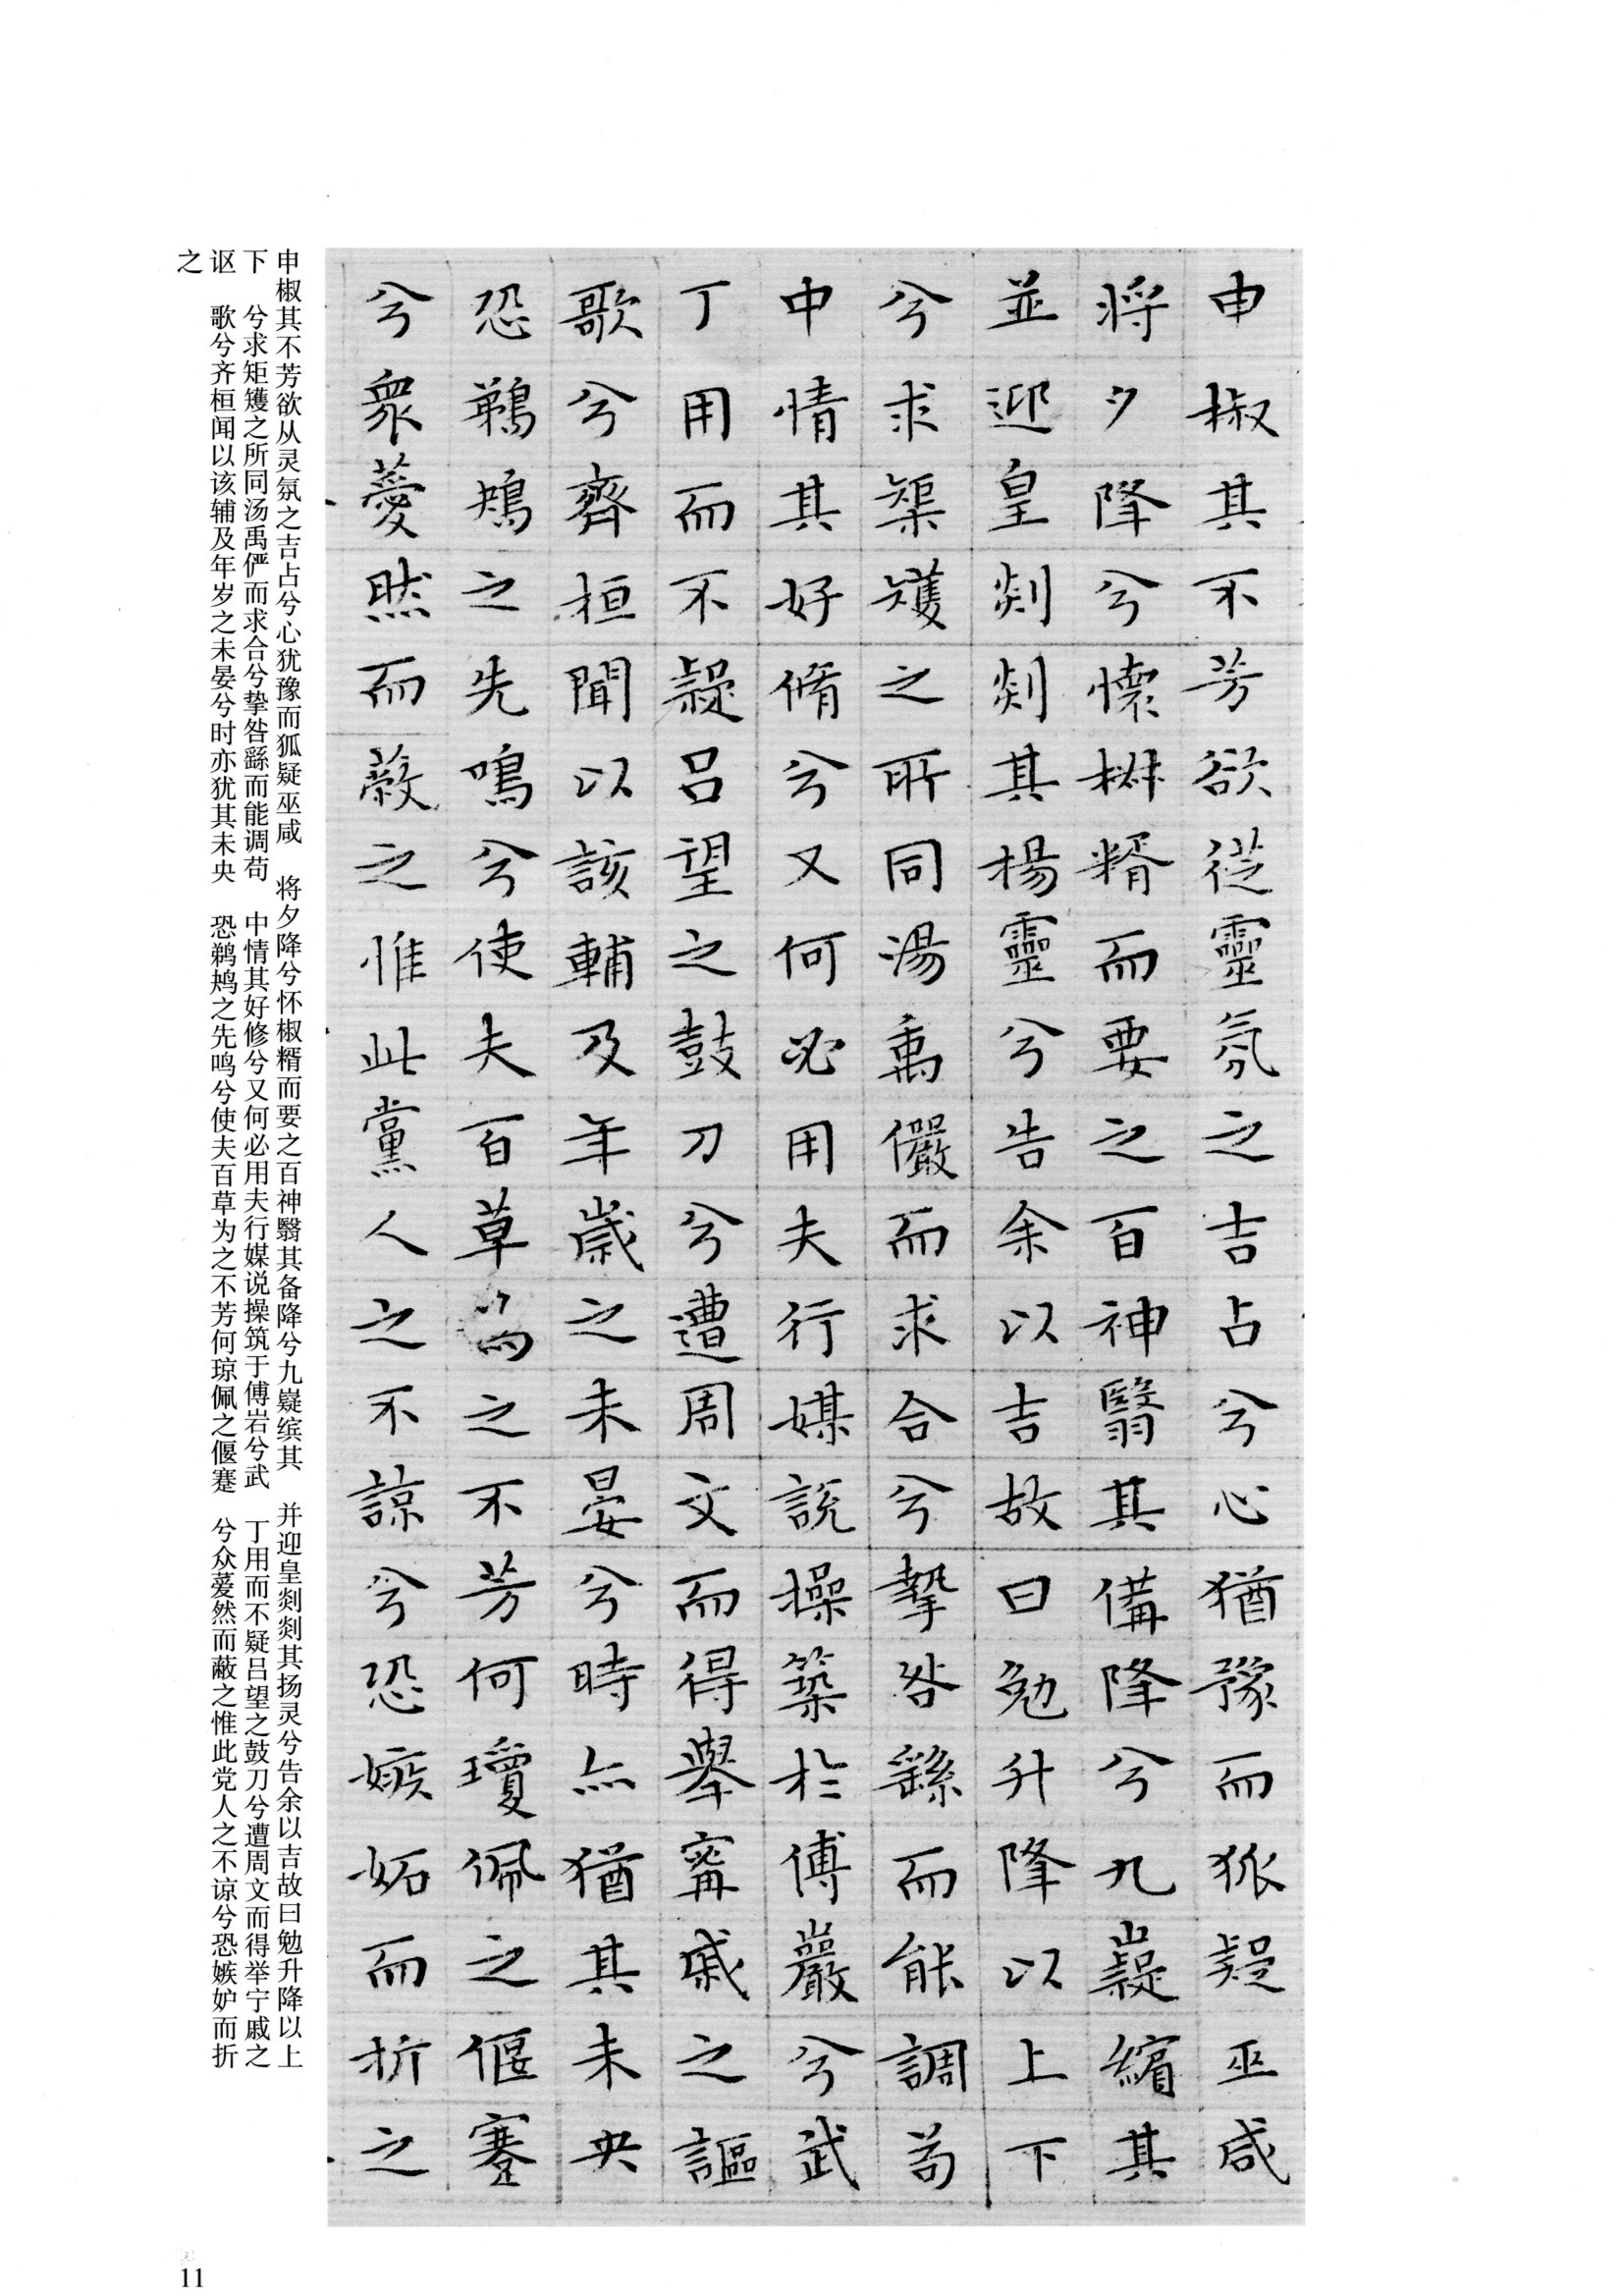 申椒其不芳欲從靈氛之吉占兮心猶豫而狐疑巫咸
將夕降兮懷椒糈而要之百神翳其備降兮九嶷繽其
並迎皇剡剡其揚靈兮告余以吉故曰勉升降以上下
兮求榘矱之所同湯禹儼而求合兮摯咎繇而能調苟
中情其好脩兮又何必用夫行媒說操築於傅巖兮武
丁用而不疑呂望之鼓刀兮遭周文而得舉甯戚之謳
歌兮齊桓聞以該輔及年歲之未晏兮時亦猶其未央
恐鵜鴂之先鳴兮使夫百草為之不芳何瓊佩之偃蹇
兮眾薆然而蔽之惟此黨人之不諒兮恐嫉妬而折之
申椒其不芳欲从灵氛之吉占兮心犹豫而狐疑巫咸　将夕降兮怀椒糈而要之百神翳其备降兮九嶷缤其　并迎皇剡剡其扬灵兮告余以吉故曰勉升降以上
下　兮求矩矱之所同汤禹俨而求合兮挚咎繇而能调苟　中情其好修兮又何必用夫行媒说操筑于傅岩兮武　丁用而不疑吕望之鼓刀兮遭周文而得举宁戚之
讴　歌兮齐桓闻以该辅及年岁之未晏兮时亦犹其未央　恐鹈鴂之先鸣兮使夫百草为之不芳何琼佩之偃蹇　兮众薆然而蔽之惟此党人之不谅兮恐嫉妒而折
之
11